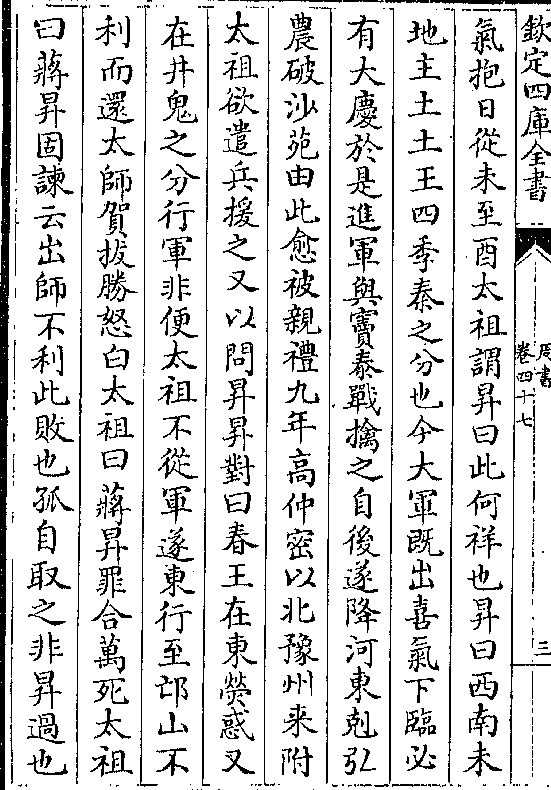 欽定四庫全書
周書
卷四十七
三
氣抱日從未至酉太祖謂昇曰此何祥也昇曰西南未
地主土土王四季秦之分也今大軍既出喜氣下臨必
有大慶於是進軍與竇泰戰擒之自後遂降河東剋弘
農破沙苑由此愈被親禮九年高仲密以北豫州来附
太祖欲遣兵援之又以問昇昇對曰春王在東熒惑又
在井鬼之分行軍非便太祖不從軍遂東行至邙山不
利而還太師賀拔勝怒白太祖曰蔣昇罪合萬死太祖
曰蔣昇固諫云出師不利此敗也孤自取之非昇過也